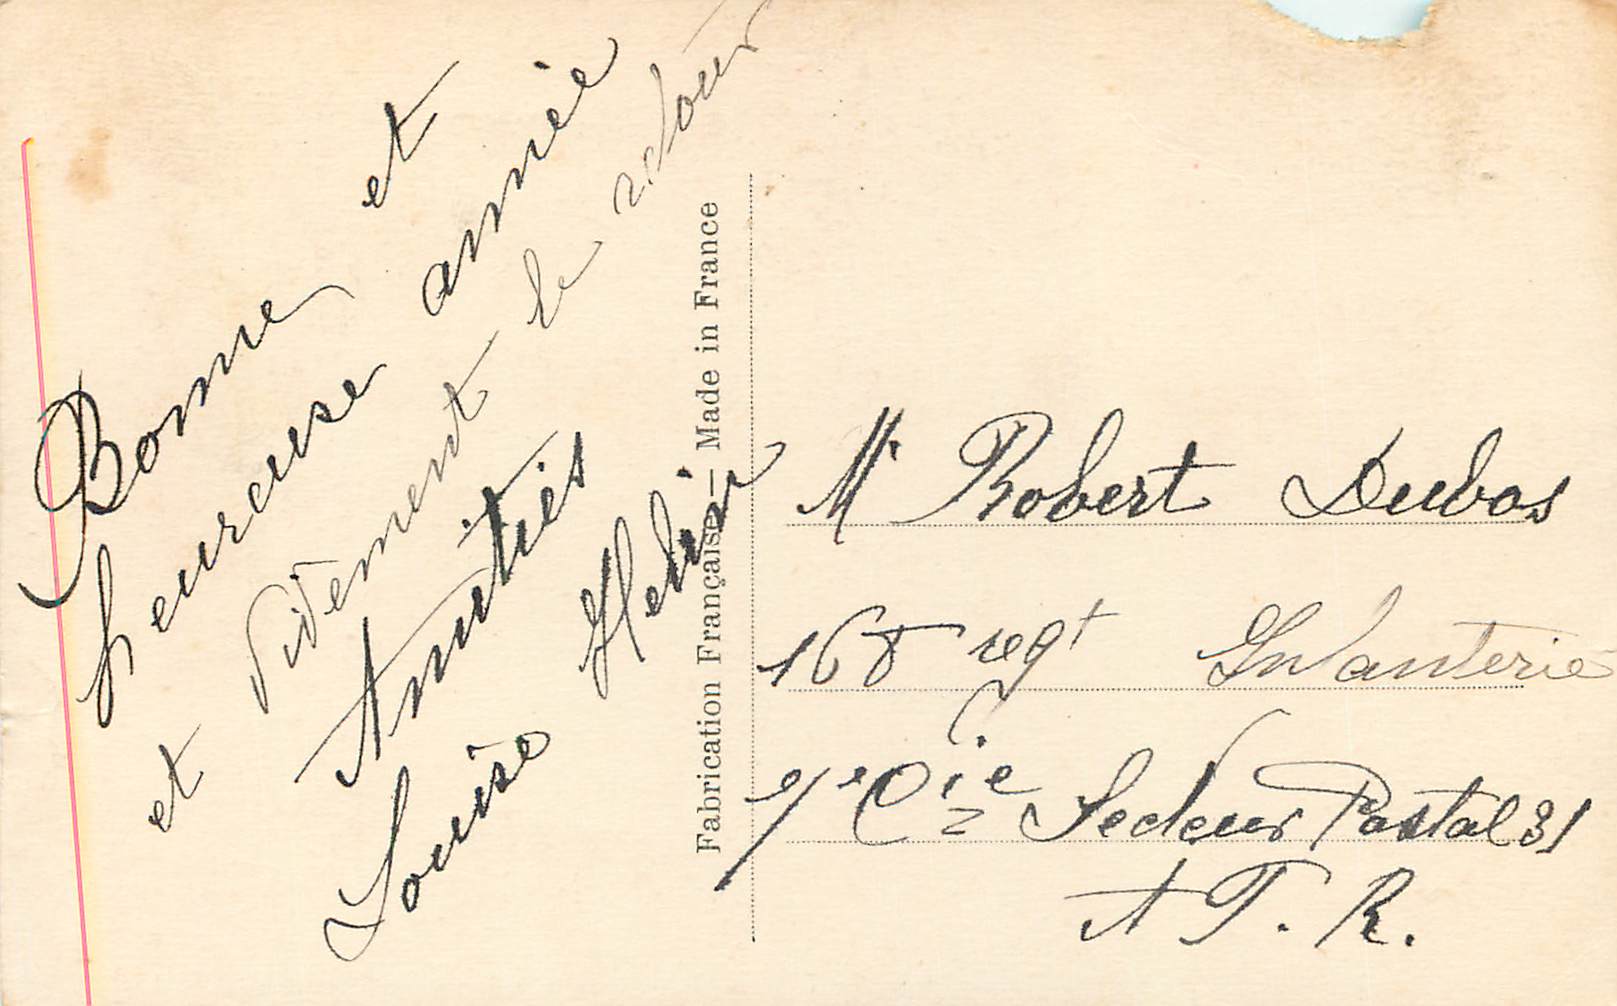 Bonne et
heureuse année
et vitement le retour
Amitiés
Louise Helin
Fabrication Française — Made in France
Mr Robert Dubos
168 regt Infanterie
7e Cie Secteur Postal 31
A T. R.